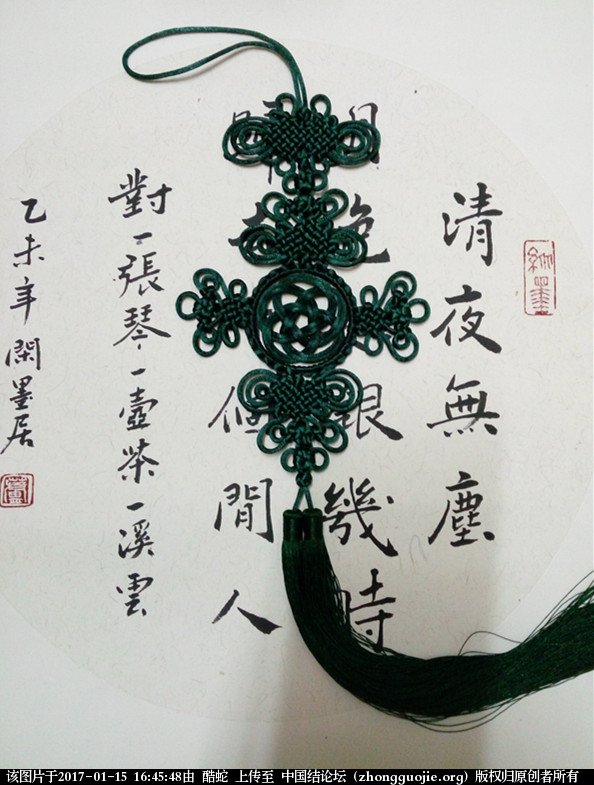 清夜無塵
色銀幾時
個閒人
對一張琴一壺茶一溪雲
乙未年閑墨居
该图片于2017-01-15 16:45:48由 酷蛇 上传至 中国结论坛 (zhongguojie.org) 版权归原创者所有